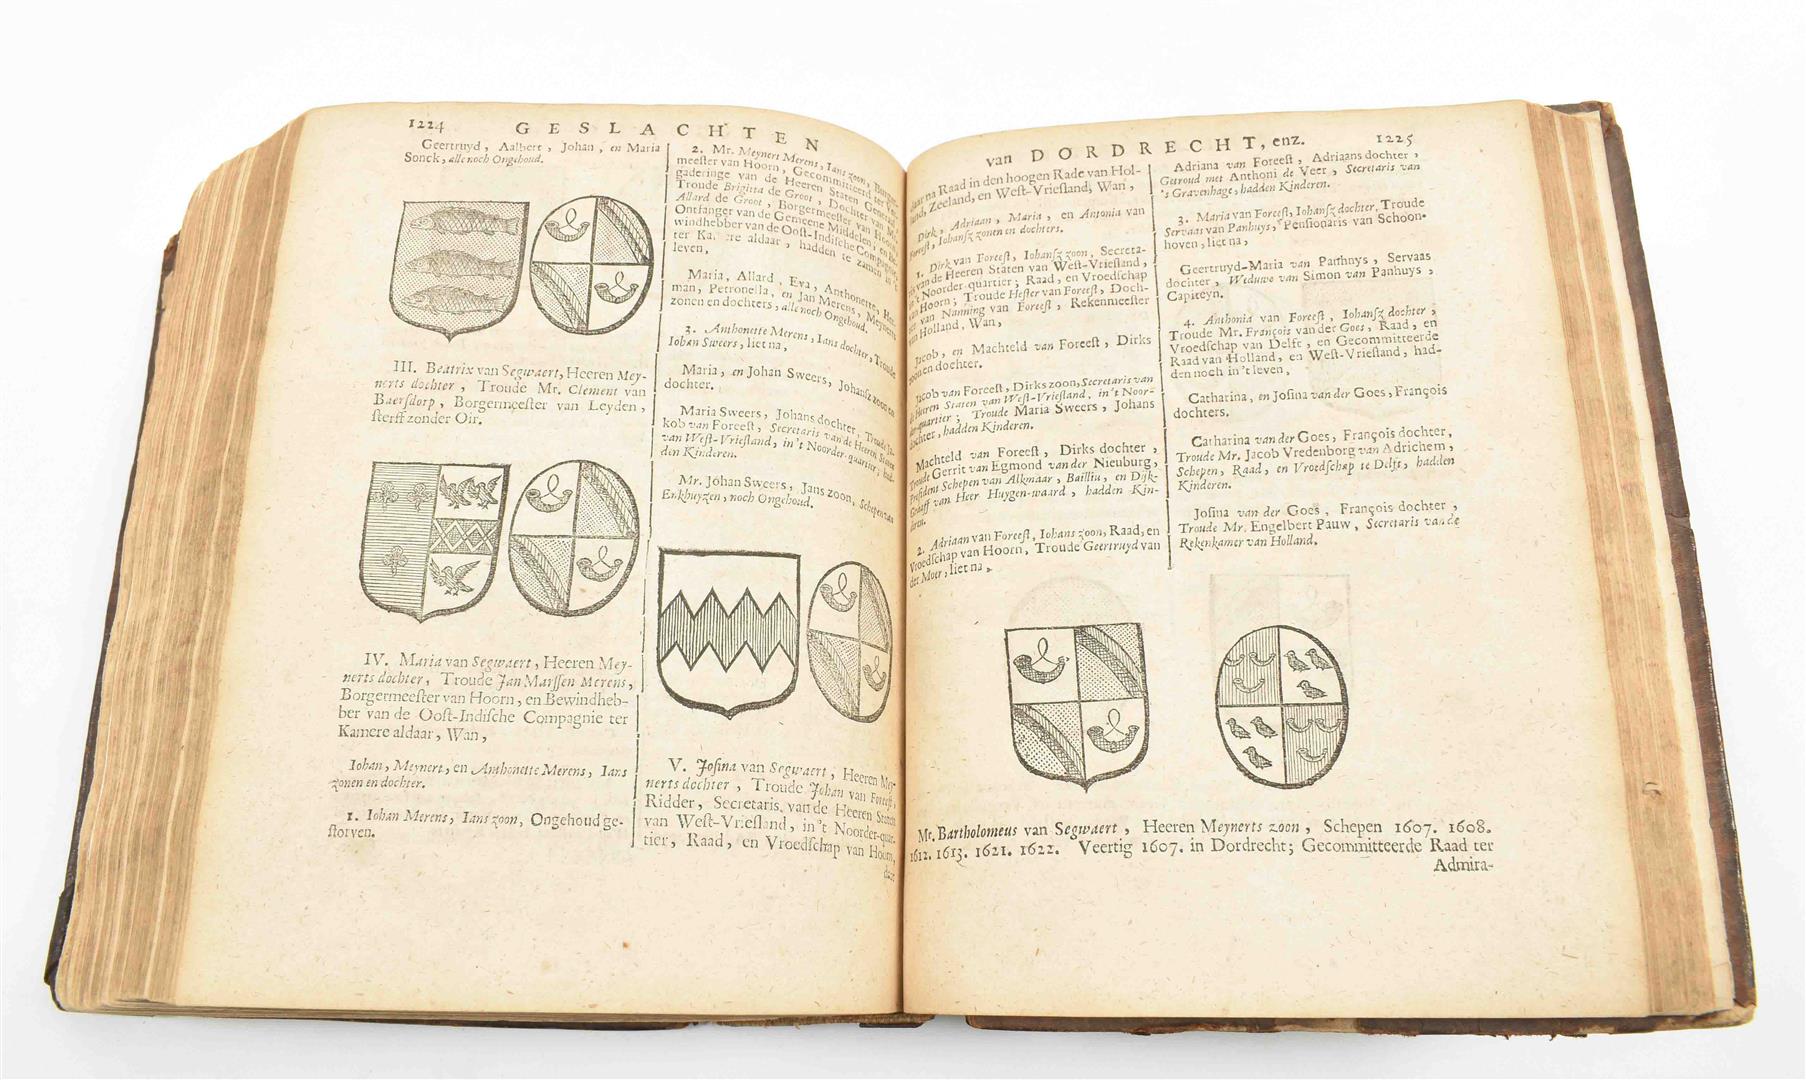 1224 GESLACHTEN
Geertruyd, Aalbert, Johan, en Maria
Sonck, alle noch Ongehoud.
III. Beatrix van Segwaert, Heeren Mey-
nerts dochter, Troude Mr. Clement van
Baersdorp, Borgermeester van Leyden,
sterff zonder Oir.
IV. Maria van Segwaert, Heeren Mey-
nerts dochter, Troude Jan Marssen Merens,
Borgermeester van Hoorn, en Bewindheb-
ber van de Oost-Indische Compagnie ter
Kamere aldaar, Wan,
Iohan, Meynert, en Anthonette Merens, Ians
zonen en dochter.
1. Iohan Merens, Ians zoon, Ongehoud ge-
storven.
2. Mr. Meynert Merens, Ians zoon, Borger-
meester van Hoorn, Gecommitteerd ter Ver-
gaderinge van de Heeren Staten Generaal,
Troude Brigitta de Groot, Dochter van Mr.
Allard de Groot, Borgermeester van Hoorn,
Ontfanger van de Gemeene Middelen, en Be-
windhebber van de Oost-Indische Compagnie
ter Ka re aldaar, hadden te zamen in 't
leven,
Maria, Allard, Eva, Anthonette, Her-
man, Petronella, en Jan Merens, Meynerts
zonen en dochters, alle noch Ongehoud.
3. Anthonette Merens, Ians dochter, Troude
Iohan Sweers, liet na,
Maria, en Johan Sweers, Johans zoon en
dochter.
Maria Sweers, Johans dochter, Troude Ja-
kob van Foreest, Secretaris van de Heeren Staten
van West-Vriesland, in't Noorder-quartier, had-
den Kinderen.
Mr. Johan Sweers, Jans zoon, Schepen van
Enkhuyzen, noch Ongehoud.
V. Josina van Segwaert, Heeren Mey-
nerts dochter, Troude Johan van Foreest,
Ridder, Secretaris van de Heeren Staten
van West-Vriesland, in't Noorder-quar-
tier, Raad, en Vroedschap van Hoorn,
daar
van DORDRECHT, enz. 1225
daar na Raad in den hoogen Rade van Hol-
land, Zeeland, en West-Vriesland, Wan,
Dirk, Adriaan, Maria, en Antonia van
Foreest, Iohansz zonen en dochters.
1. Dirk van Foreest, Iohansz zoon, Secreta-
ris van de Heeren Staten van West-Vriesland,
in 't Noorder-quartier; Raad, en Vroedschap
van Hoorn; Troude Hester van Foreest, Doch-
ter van Nanning van Foreest, Rekenmeester
van Holland, Wan,
Jacob, en Machteld van Foreest, Dirks
zoon en dochter.
Jacob van Foreest, Dirks zoon, Secretaris van
de Heeren Staten van West-Vriesland, in't Noor-
der-quartier; Troude Maria Sweers, Johans
dochter, hadden Kinderen.
Machteld van Foreest, Dirks dochter,
Troude Gerrit van Egmond van der Nieuburg,
President Schepen van Alkmaar, Bailliu, en Dijk-
Graaff van Heer Huygen-waard, hadden Kin-
deren.
2. Adriaan van Foreest, Iohans zoon, Raad, en
Vroedschap van Hoorn, Troude Geertruyd van
der Moer, liet na,
Adriana van Foreest, Adriaans dochter,
Getroud met Anthoni de Veer, Secretaris van
's Gravenhage, hadden Kinderen.
3. Maria van Foreest, Iohansz dochter, Troude
Servaas van Panhuys, Pensionaris van Schoon-
hoven, liet na,
Geertruyd-Maria van Panhuys, Servaas
dochter, Weduwe van Simon van Panhuys,
Capiteyn.
4. Anthonia van Foreest, Iohansz dochter,
Troude Mr. François van der Goes, Raad, en
Vroedschap van Delft, en Gecommitteerde
Raad van Holland, en West-Vriesland, had-
den noch in 't leven,
Catharina, en Josina van der Goes, François
dochters.
Catharina van der Goes, François dochter,
Troude Mr. Jacob Vredenborg van Adrichem,
Schepen, Raad, en Vroedschap te Delft, hadden
Kinderen.
Josina van der Goes, François dochter,
Troude Mr. Engelbert Pauw, Secretaris van de
Rekenkamer van Holland.
Mr. Bartholomeus van Segwaert, Heeren Meynerts zoon, Schepen 1607. 1608.
1612. 1613. 1621. 1622. Veertig 1607. in Dordrecht; Gecommitteerde Raad ter
Admira-